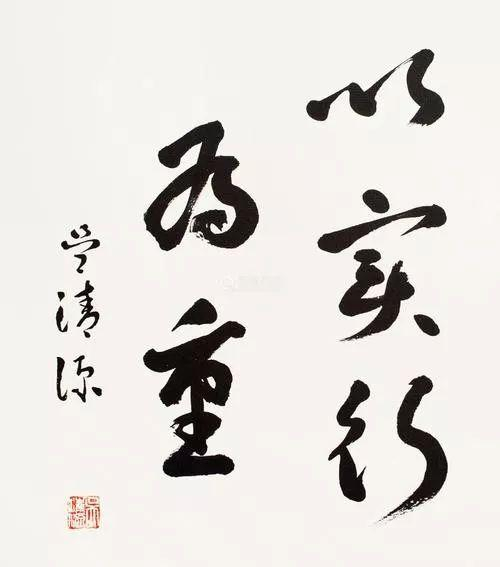 以实行
为重
吴清源